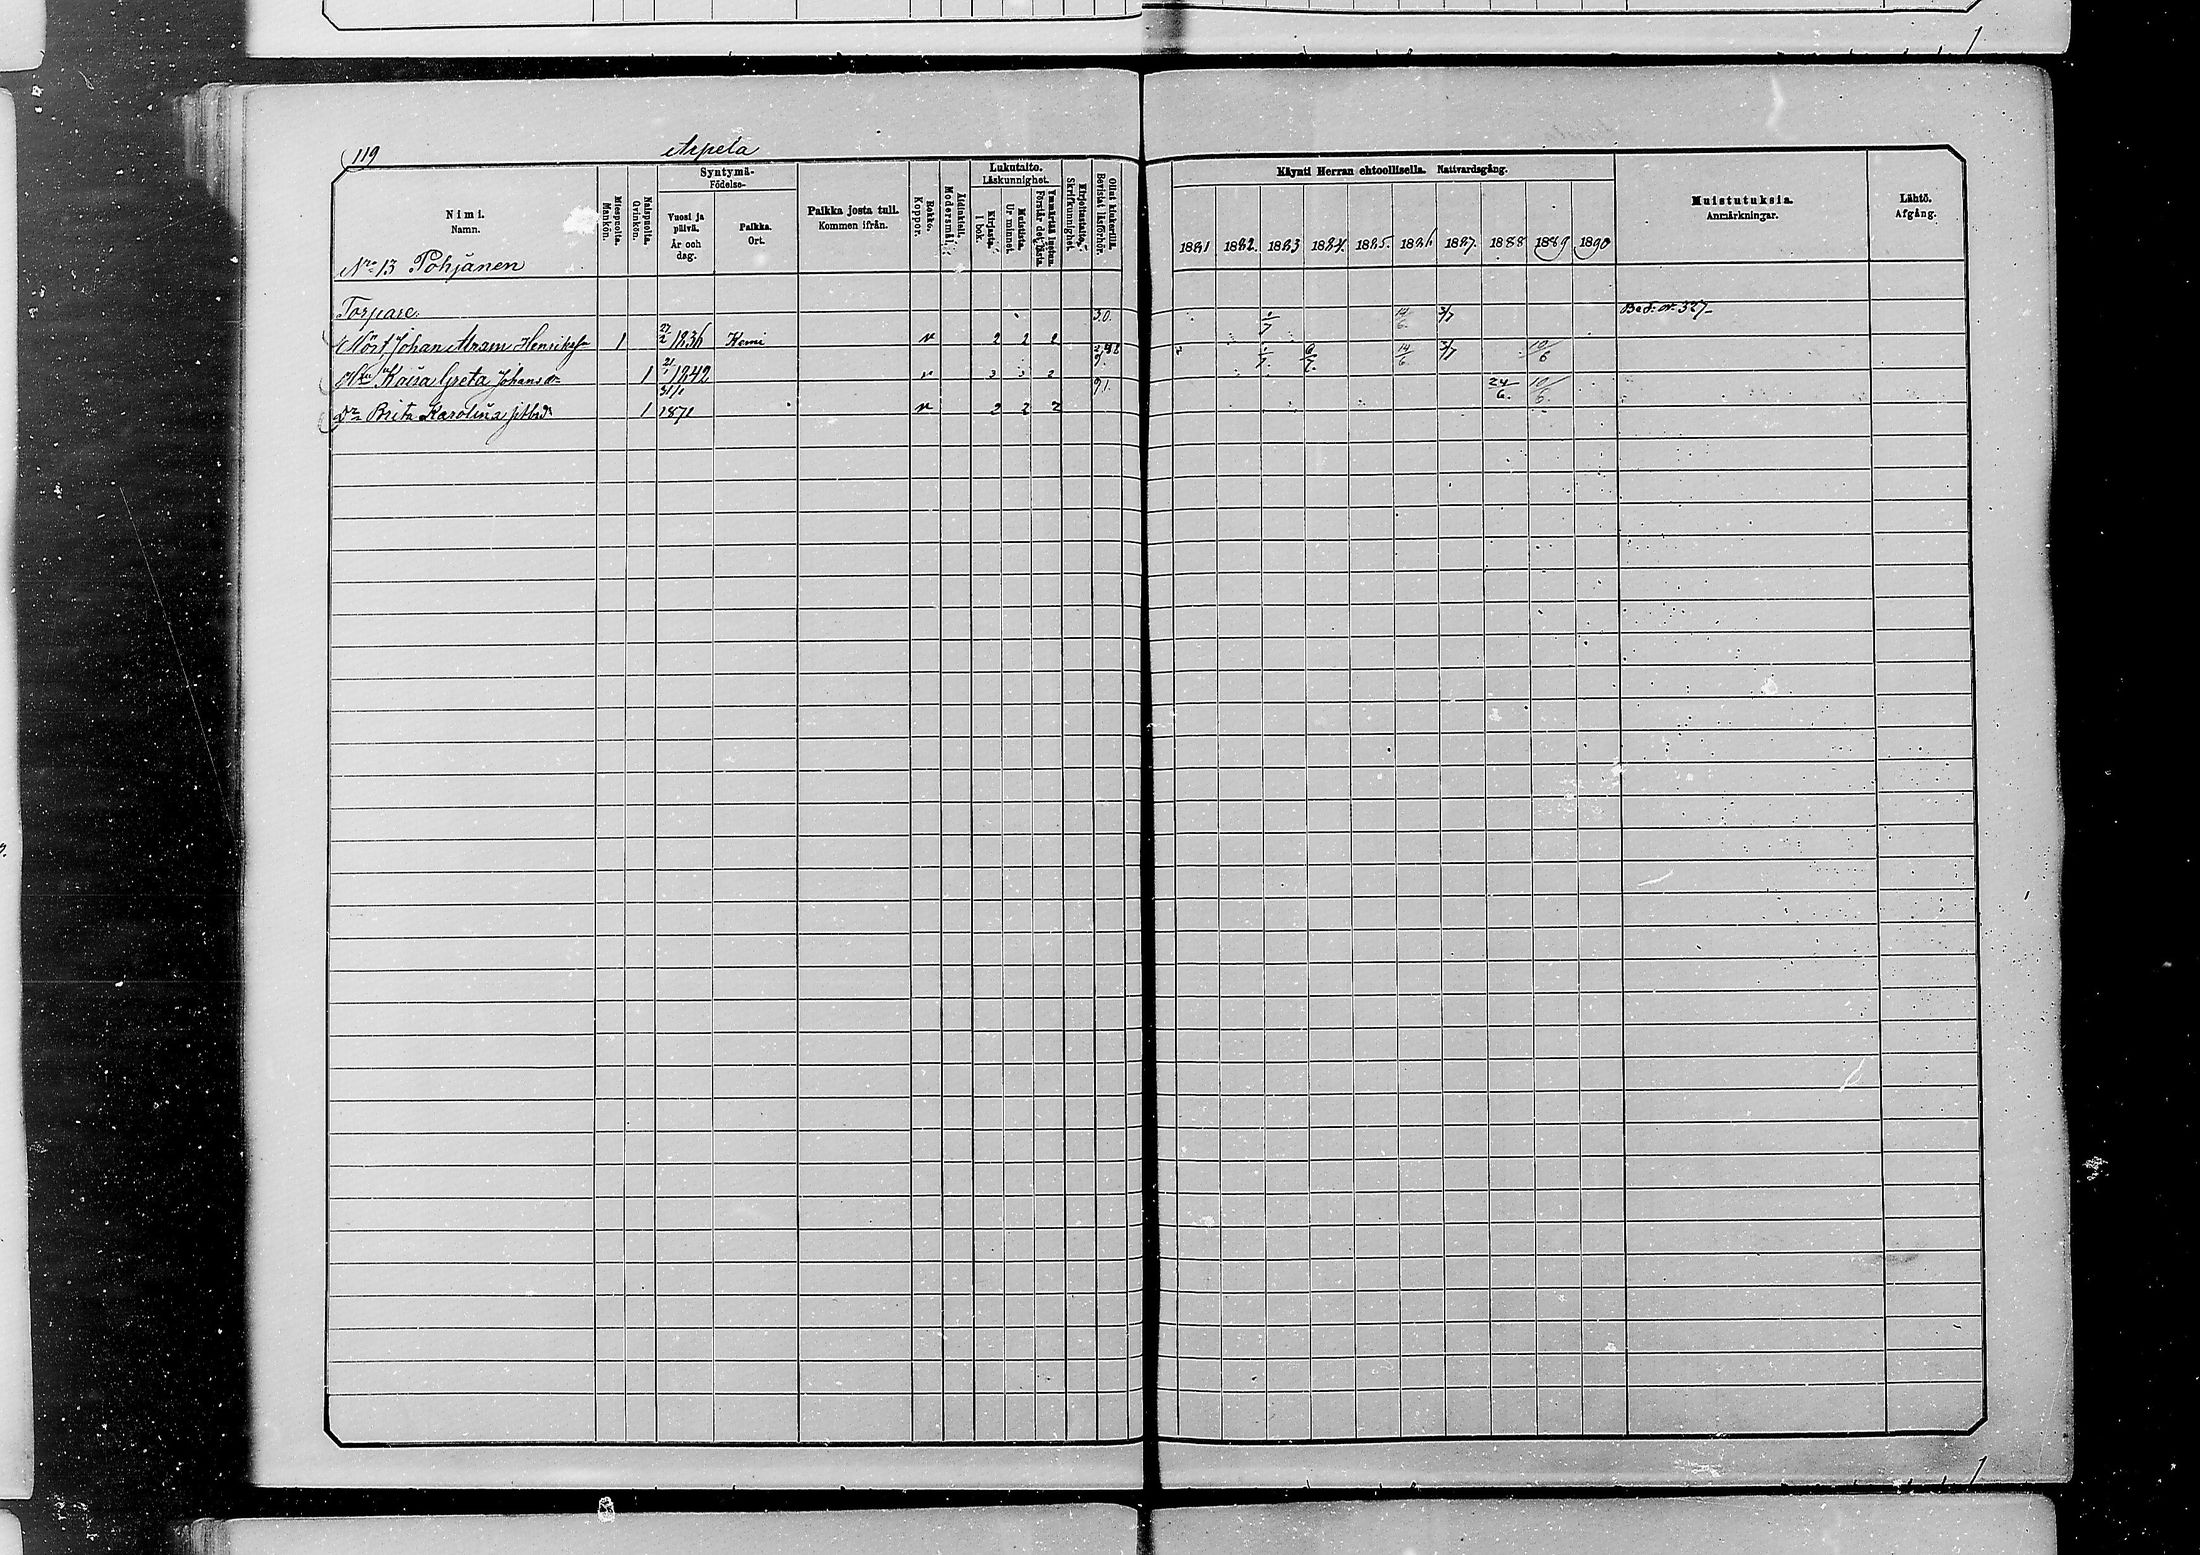 119 Arpela
Nimi.
Namn.
Miespuolta.
Mankön.
Naispuolta.
Qvinkön.
Syntymä-
Födelse-
Vuosi ja
päivä.
År och
dag.
Paikka.
Ort.
Paikka josta tuli.
Kommen ifrån.
Rokko.
Koppor.
Äidinkieli.
Modersmål.
Lukutaito.
Läskunnighet.
Kirjasta.
I bok.
Muistista.
Ur minnet.
Ymmärtää luetun.
Förstår det lästa.
Kirjoitustaito.
Skrifkunnighet.
Ollut kinkerillä.
Bevistat läsförhör.
Käynti Herran ehtoollisella. Nattvardsgång.
1881 1882. 1883 1884. 1885. 1886 1887. 1888 1889 1890
Muistutuksia.
Anmärkningar.
Lähtö.
Afgång.
No 13 Pohjanen
Torpare
30. 1/7 14/6 3/7
Johan Henriks 1 27/2 1836 Kemi v 2 2 2
1/7 6/7 14/6 3/7 10/6
Kaisa Greta Johans dr 1 21/1 1842 v 3 3 2
91. 24/6 10/6
Dr Brita Karolina 1 31/1 1871 v 3 2 2